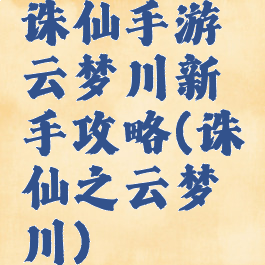 诛仙手游
云梦川新
手攻略(诛
仙之云梦
川)